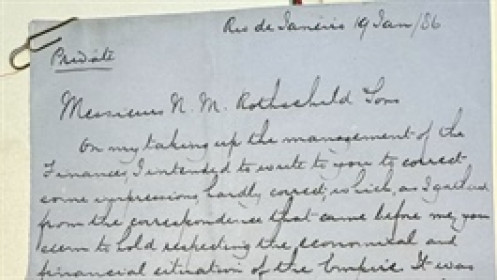 Rio de Janeiro 19 Jan/86
Private
Messieurs N. M. Rothschild Sons
On my taking up the management of the
Finances, I intended to write to you to correct
some impressions, hardly correct, which, as I gathered
from the correspondence that came before me, you
seem to hold respecting the economical and
financial situation of the Empire. It was